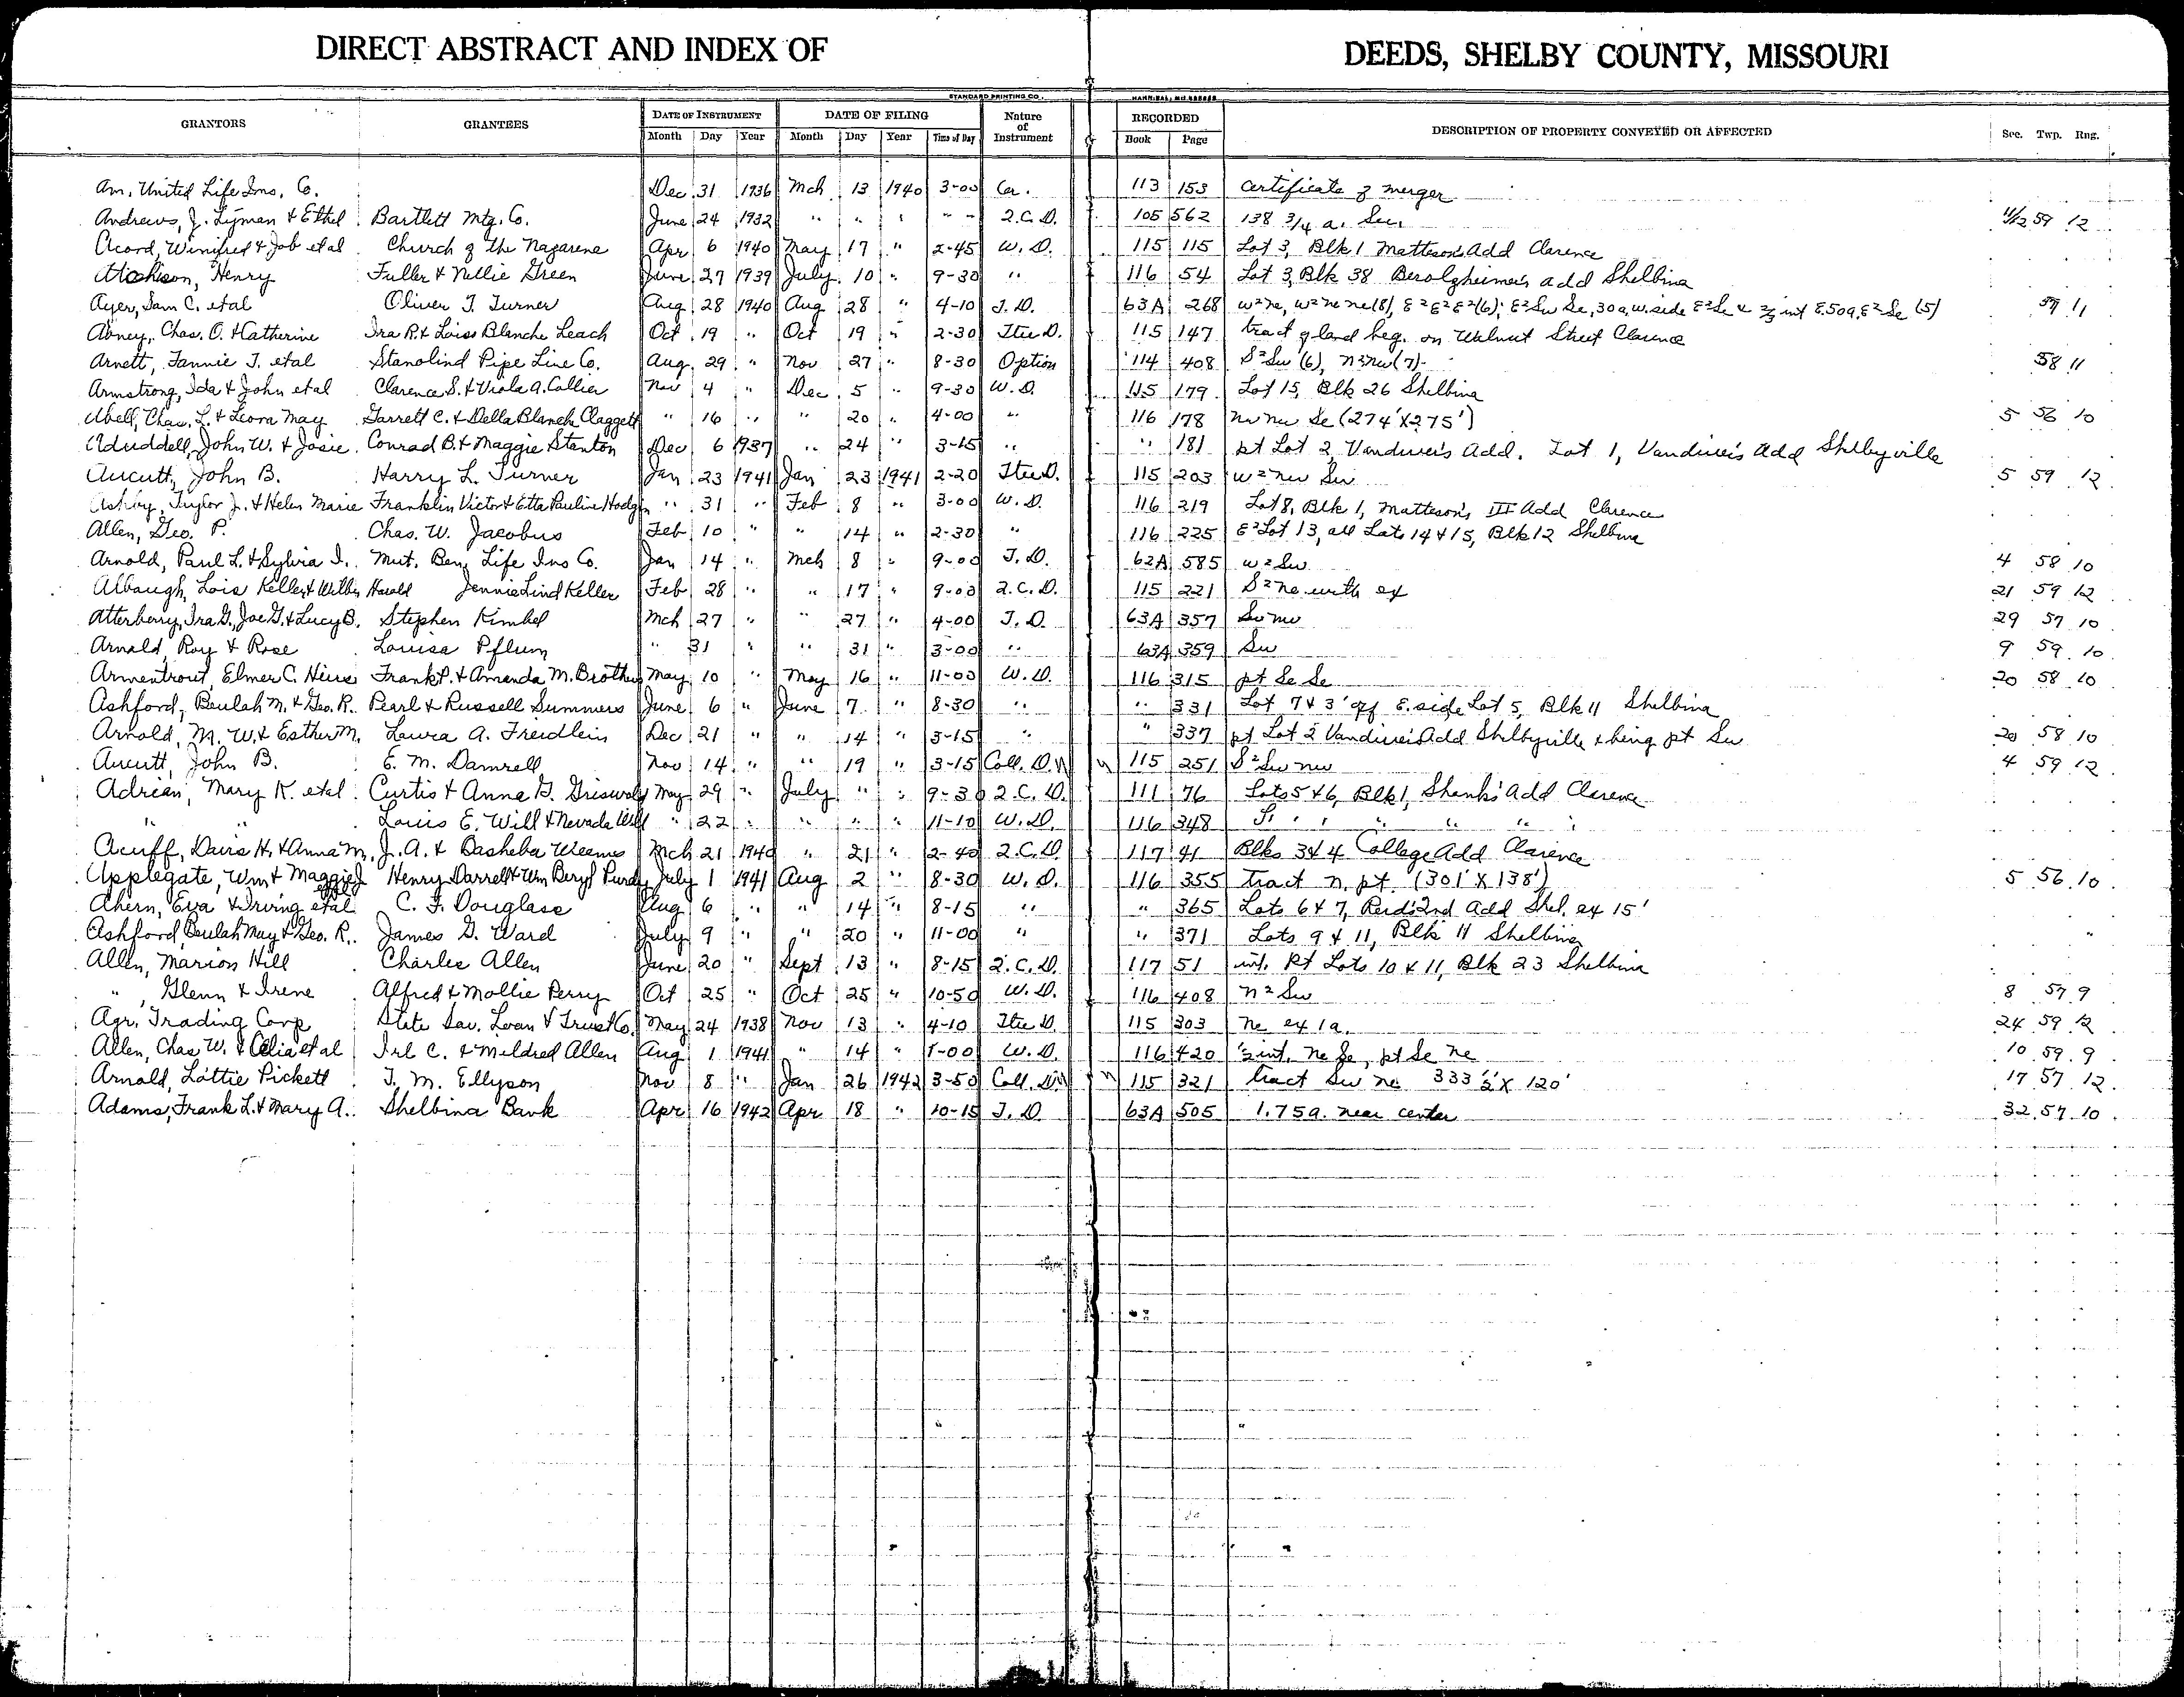 DIRECT ABSTRACT AND INDEX OF DEEDS, SHELBY COUNTY, MISSOURI
STANDARD PRINTING CO. HANNIBAL, MISSOURI
GRANTORS GRANTEES DATE OF INSTRUMENT DATE OF FILING Nature of Instrument RECORDED DESCRIPTION OF PROPERTY CONVEYED OR AFFECTED Sec. Twp. Rng.
Month Day Year Month Day Year Time of Day Book Page
Am. United Life Ins. Co. Dec 31 1936 Mch 13 1940 3-00 Cer. 113 153 Certificate of merger
Andrews, J. Lyman & Ethel Bartlett Mtg. Co. June 24 1932 " " " " - 2.C.D. 105 562 138 3/4 a. Sec. 11/12 59 12
Acord, Winifred & Job et al Church of the Nazarene Apr 6 1940 May 17 " 2-45 W.D. 115 115 Lot 3, Blk 1 Matteson's Add Clarence
Atchison, Henry Fuller & Nellie Green June 27 1939 July 10 " 9-30 " 116 54 Lot 3, Blk 38 Berolzheimer's add Shelbina
Ayer, Sam C. et al Oliver T. Turner Aug 28 1940 Aug 28 " 4-10 T.D. 63A 268 W²ne, W²ne ne(8), E²E²E²(6); E²Sw Se, 30a, W. side E²Se & 2/3 int E.50a, E²Se (5) 57 11
Abney, Chas. O. & Catherine Ira R. & Loiss Blanche Leach Oct 19 " Oct 19 " 2-30 Itee D. 115 147 tract of land beg. on Walnut Street Clarence
Arnett, Fannie T. et al Stanolind Pipe Line Co. Aug. 29 " Nov 27 " 8-30 Option 114 408 S²Sw (6), n²nw (7) 58 11
Armstrong, Ida & John et al Clarence S. & Viola A. Collier Nov 4 " Dec 5 " 9-30 W.D. 115 179 Lot 15, Blk 26 Shelbina
Abell, Chas. L. & Leora May Garrett C. & Della Blanche Claggett " 16 " " 20 " 4-00 " 116 178 nw nw Se (274'X275') 5 56 10
Aduddell, John W. & Josie Conrad B. & Maggie Stanton Dec 6 1937 " 24 " 3-15 " " 181 pt Lot 2 Vandiver's Add. Lot 1, Vandiver's Add Shelbyville
Aucutt, John B. Harry L. Turner Jan 23 1941 Jan 23 1941 2-20 Itee D. 115 203 W²nw Sw 5 59 12
Ashby, Taylor J. & Helen Marie Franklin Victor & Etta Pauline Hodgin " 31 " Feb 8 " 3-00 W.D. 116 219 Lot 8, Blk 1, Matteson's III Add Clarence
Allen, Geo. P. Chas. W. Jacobus Feb 10 " " 14 " 2-30 " 116 225 E²Lot 13, all Lots 14 & 15, Blk 12 Shelbina
Arnold, Paul L. & Sylvia I. Mut. Ben. Life Ins Co. Jan 14 " Mch 8 " 9-00 T.D. 62A 585 W²Sw 4 58 10
Albaugh, Lois Keller & Wilbur Harold Jennie Lind Keller Feb 28 " " 17 " 9-00 2.C.D. 115 221 S²ne with ex 21 59 12
Atterberry, Ira G., Joe G. & Lucy B. Stephen Kimbel Mch 27 " " 27 " 4-00 T.D. 63A 357 Sw nw 29 57 10
Arnold, Roy & Rose Louisa Pflum " 31 " " 31 " 3-00 " 63A 359 Sw 9 59 10
Armentrout, Elmer C. Heirs Frank P. & Amanda M. Brothers May 10 " May 16 " 11-00 W.D. 116 315 pt Se Se 20 58 10
Ashford, Beulah M. & Geo. R. Pearl & Russell Summers June 6 " June 7 " 8-30 " " 331 Lot 7 & 3' off E. side Lot 5, Blk 11 Shelbina
Arnold, M. W. & Esther M. Laura A. Freidlein Dec 21 " " 14 " 3-15 " " 337 pt Lot 2 Vandiver's Add Shelbyville & being pt Sw 20 58 10
Aucutt, John B. E. M. Damrell Nov 14 " " 19 " 3-15 Coll. D. 115 251 S²Sw nw 4 59 12
Adrian, Mary K. et al Curtis & Anna G. Griswold May 29 " July " " 9-30 2.C.D. 111 76 Lots 5 & 6, Blk 1, Shanks' Add Clarence
" " Louis E. Will & Nevada Will " 22 " " " " 11-10 W.D. 116 348 " " " "
Acuff, Davis H. & Anna M. J. A. & Basheba Weems Mch 21 1940 " 21 " 2-40 2.C.D. 117 41 Blks 3 & 4 College Add Clarence
Applegate, Wm & Maggie J Henry Darrell & Wm Beryl Purdy July 1 1941 Aug 2 " 8-30 W.D. 116 355 tract n. pt. (301'X138') 5 56 10
Ahern, Eva & Irving et al C. F. Douglass Aug 6 " " 14 " 8-15 " " 365 Lots 6 & 7, Reid's 2nd Add Shel. ex 15'
Ashford, Beulah May & Geo. R. James G. Ward July 9 " " 20 " 11-00 " " 371 Lots 9 & 11, Blk 11 Shelbina
Allen, Marion Hill Charles Allen June 20 " Sept 13 " 8-15 2.C.D. 117 51 int. Pt Lots 10 & 11, Blk 23 Shelbina
" , Glenn & Irene Alfred & Mollie Perry Oct 25 " Oct 25 " 10-50 W.D. 116 408 n²Sw 8 57 9
Agr. Trading Corp State Sav. Loan & Trust Co. May 24 1938 Nov 13 " 4-10 Itee D. 115 303 ne ex 1a. 24 59 12
Allen, Chas W. & Celia et al Irl C. & Mildred Allen Aug 1 1941 " 14 " 1-00 W.D. 116 420 ½ int. ne Se, pt Se ne 10 59 9
Arnold, Lottie Pickett T. M. Ellyson Nov 8 " Jan 26 1942 3-50 Coll. D. 115 321 tract Sw ne 333½'X120' 17 57 12
Adams, Frank L. & Mary A. Shelbina Bank Apr 16 1942 Apr 18 " 10-15 T.D. 63A 505 1.75a. near center 32 57 10